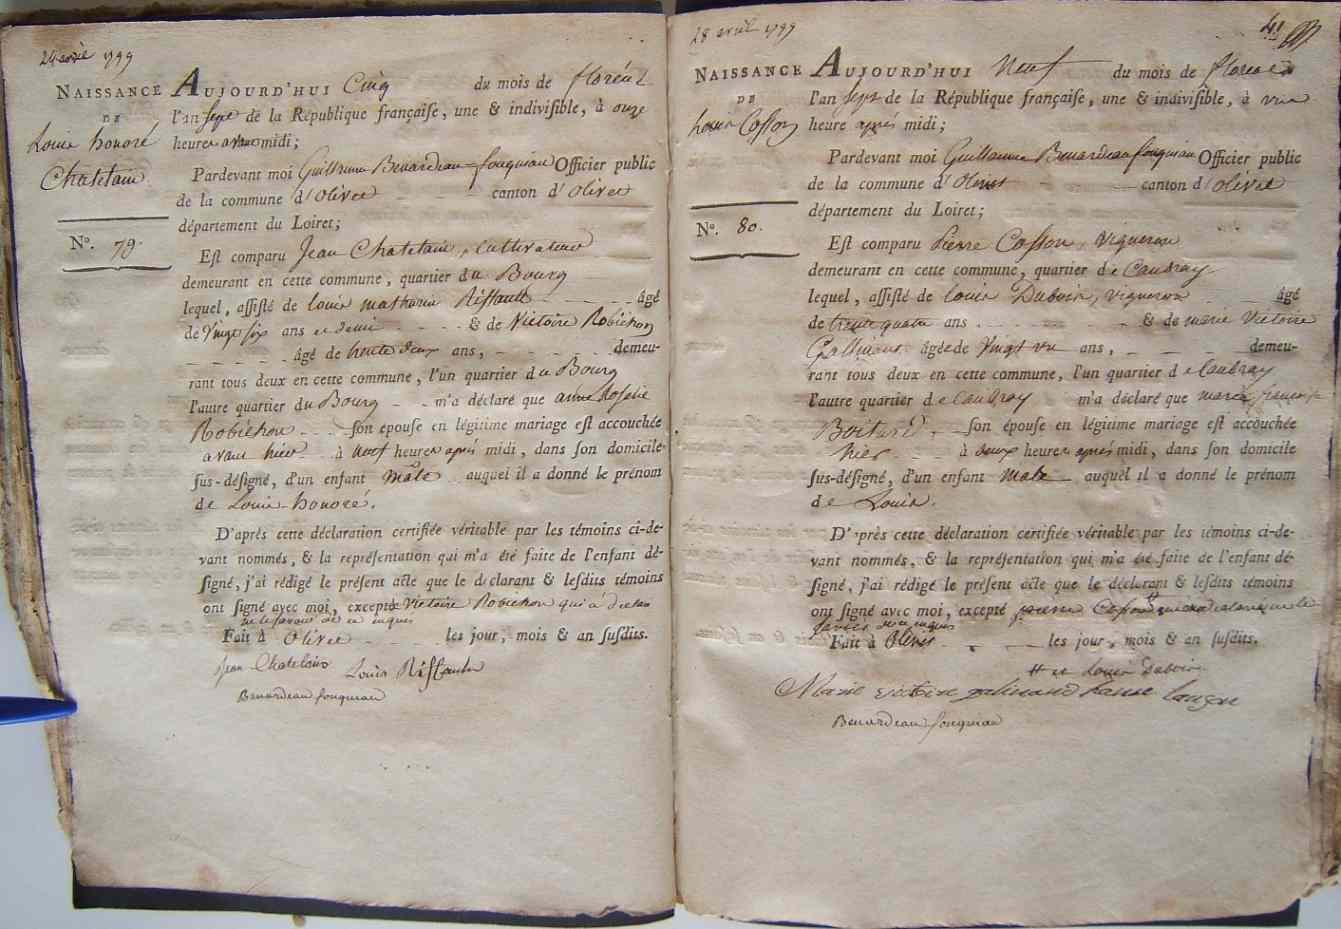 24 avril 1799
NAISSANCE
DE
Louis honoré
Chatelain
N°. 79.
AUJOURD'HUI Cinq du mois de floréal
l'an sept de la République françaiſe, une & indiviſible, à onze
heures avant midi;
Pardevant moi Guillaume Benardeau fouquiau Officier public
de la commune d'Olivet canton d'Olivet
département du Loiret;
Eſt comparu Jean Chatelain, Cultivateur
demeurant en cette commune, quartier du Bourg
lequel, aſſiſté de louis mathurin Riffault âgé
de Vingt six ans et demi & de Victoire Robichon
âgé de trente deux ans, demeu-
rant tous deux en cette commune, l'un quartier du Bourg
l'autre quartier du Bourg m'a déclaré que anne Rosalie
Robichon ſon épouse en légitime mariage eſt accouchée
avant hier à neuf heures après midi, dans ſon domicile
ſus-déſigné, d'un enfant mâle auquel il a donné le prénom
de Louis honoré.
D'après cette déclaration certifiée véritable par les témoins ci-de-
vant nommés, & la repréſentation qui m'a été faite de l'enfant dé-
ſigné, j'ai rédigé le préſent acte que le déclarant & leſdits témoins
ont ſigné avec moi, excepté Victoire Robichon qui a déclaré
ne le savoir de ce inquis
Fait à Olivet les jour, mois & an ſuſdits.
Jean Chatelain Louis Riffault
Benardeau fouquiau
28 avril 1799
41
NAISSANCE
DE
Louis Cosson
N°. 80.
AUJOURD'HUI Neuf du mois de floréal
l'an sept de la République françaiſe, une & indiviſible, à une
heure après midi;
Pardevant moi Guillaume Benardeau fouquiau Officier public
de la commune d'Olivet canton d'Olivet
département du Loiret;
Eſt comparu Pierre Cosson, Vigneron
demeurant en cette commune, quartier de Caubray
lequel, aſſiſté de louis Duboin, vigneron âgé
de trente quatre ans & de marie Victoire
âgée de Vingt un ans, demeu-
rant tous deux en cette commune, l'un quartier de Caubray
l'autre quartier de Caubray m'a déclaré que marie
ſon épouse en légitime mariage eſt accouchée
hier à deux heures après midi, dans ſon domicile
ſus-déſigné, d'un enfant male auquel il a donné le prénom
de Louis.
D'après cette déclaration certifiée véritable par les témoins ci-de-
vant nommés, & la repréſentation qui m'a été faite de l'enfant dé-
ſigné, j'ai rédigé le préſent acte que le déclarant & leſdits témoins
ont ſigné avec moi, excepté pierre Cosson
Fait à Olivet les jour, mois & an ſuſdits.
# et Louis Duboin
Marie victoire galinand
Benardeau fouquiau